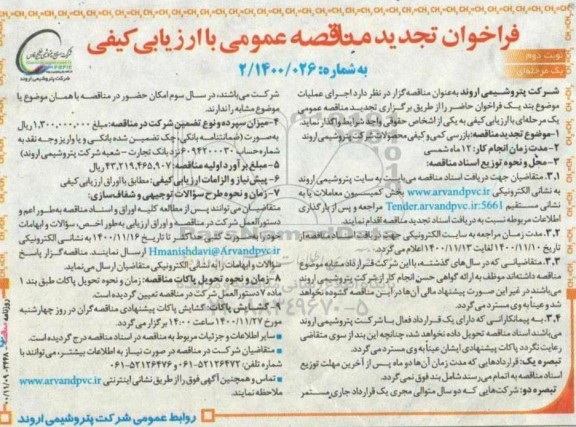 فراخوان تجدید مناقصه عمومی با ارزیابی کیفی
به شماره: ۲/۱۴۰۰/۰۲۶
نوبت دوم
یک مرحله‌ای
شرکت پتروشیمی اروند
شرکت پتروشیمی اروند به عنوان مناقصه‌گزار در نظر دارد اجرای عملیات
موضوع بند یک فراخوان حاضر را از طریق برگزاری تجدید مناقصه عمومی
یک مرحله‌ای با ارزیابی کیفی به یکی از اشخاص حقوقی واجد شرایط واگذار نماید
۱-موضوع تجدید مناقصه: بازرسی کمی و کیفی محصولات شرکت پتروشیمی اروند
۲-مدت زمان انجام کار: ۱۲ ماه شمسی
۳- محل و نحوه توزیع اسناد مناقصه:
۳.۱. متقاضیان جهت دریافت اسناد مناقصه می‌بایست به سایت پتروشیمی اروند
به نشانی الکترونیکی www.arvandpvc.ir بخش کمیسیون معاملات یا به
نشانی مستقیم Tender.arvandpvc.ir:5661 مراجعه و پس از بارگذاری
اطلاعات مربوطه نسبت به دریافت اسناد تجدید مناقصه اقدام نمایند.
۳.۲. مدت زمان مراجعه به سایت الکترونیکی و دریافت اسناد مناقصه از
تاریخ ۱۴۰۰/۱۱/۱۰ لغایت ۱۴۰۰/۱۱/۱۳ اعلام می‌گردد.
۳.۳. متقاضیانی که در سال‌های گذشته، با این شرکت قرارداد مشابه موضوع
مناقصه داشته‌اند موظف به ارائه گواهی حسن انجام کار از شرکت پتروشیمی اروند
می‌باشند در غیر این صورت پیشنهاد مالی آن‌ها در آیین مناقصه گشوده نخواهد
شد و عیناً به وی مسترد می گردد.
۳.۴. به پیمانکارانی که دارای یک قرارداد فعال با شرکت پتروشیمی اروند
می‌باشند اسناد مناقصه تحویل داده نخواهد شد، چنانچه این بند از سوی متقاضی
رعایت نگردد پاکات پیشنهادی ایشان عیناً به وی مسترد می گردد.
تبصره یک: قراردادهایی که مدت زمان آن‌ها دو ماه پس از آخرین مهلت توزیع
اسناد مناقصه به اتمام می‌رسد شامل بند فوق نمی‌گردد.
تبصره دو: شرکت‌هایی که دو سال متوالی مجری یک قرارداد جاری مستمر
شرکت می‌باشند، در سال سوم امکان حضور در مناقصه با همان موضوع یا
موضوع مشابه را ندارند.
۴-میزان سپرده و نوع تضمین شرکت در مناقصه: مبلغ ۱,۳۰۰,۰۰۰,۰۰۰ ریال
به صورت (ضمانتنامه بانکی، چک تضمین شده بانکی و یا واریز وجه نقد به
شماره حساب ۶۰۹۴۲۰۰۰۳۰ نزد بانک تجارت - شعبه شرکت پتروشیمی اروند)
۵-مبلغ برآورد اولیه مناقصه: ۴۳,۲۱۹,۴۶۵,۹۰۷ ریال
۶- پیش نیاز و الزامات ارزیابی کیفی: مطابق با اوراق ارزیابی کیفی
۷-زمان و نحوه طرح سؤالات توجیهی و شفاف‌سازی:
متقاضیان می توانند پس از مطالعه کلیه اوراق و اسناد مناقصه به طور اعم و
دستورالعمل شرکت در مناقصه و اوراق ارزیابی به طور اخص، سؤالات و ابهامات
خود را به صورت کتبی حداکثر تا تاریخ ۱۴۰۰/۱۱/۱۶ به نشانی الکترونیکی
Hmanishdavi@Arvandpvc.ir ارسال نمایند. مناقصه گزار پاسخ
سؤالات و ابهامات را به نشانی الکترونیکی متقاضیان ارسال می‌نماید
۸-زمان و نحوه تحویل پاکات مناقصه: زمان و نحوه تحویل پاکات طبق بند ۱
ماده ۷ دستورالعمل شرکت در مناقصه تعیین گردیده است.
۹- گشایش پاکات: گشایش پاکات پیشنهادی مناقصه گران در روز چهارشنبه
مورخ ۱۴۰۰/۱۱/۲۷ ساعت ۱۴:۰۰ برگزار می گردد.
سایر اطلاعات و جزئیات مربوط به مناقصه در اسناد مناقصه درج گردیده است.
متقاضیان شرکت در مناقصه در صورت نیاز به اطلاعات بیشتر، می توانند با
شماره تلفن: ۵۲۱۲۶۴۷۲-۰۶۱ و ۵۲۱۲۶۴۷۶-۰۶۱
تماس و همچنین آگهی فوق را از طریق نشانی اینترنتی www.arvandpvc.ir
ملاحظه نمایند.
روابط عمومی شرکت پتروشیمی اروند